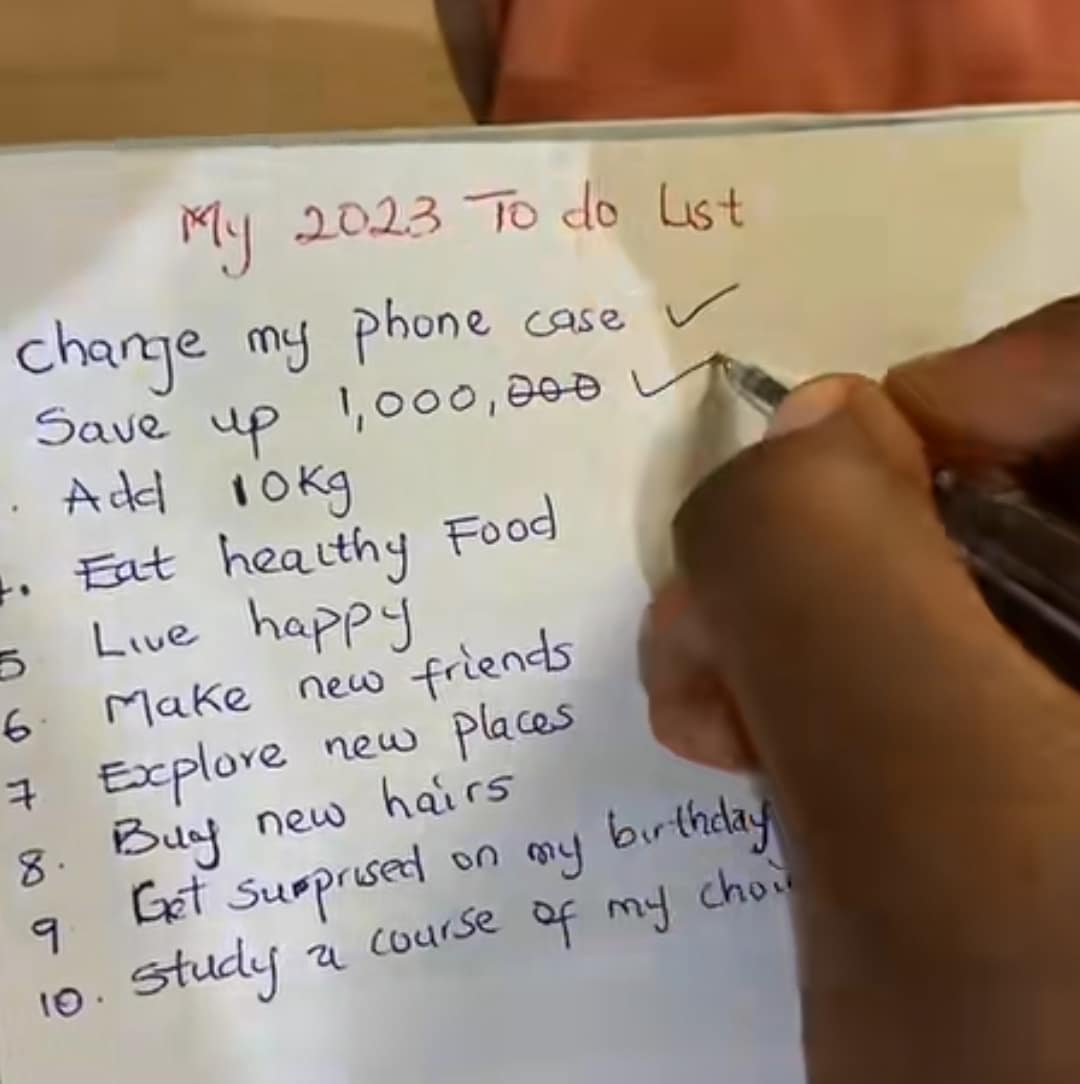 My 2023 To do List
change my phone case ✓
Save up 1,000,000 ✓
. Add 10Kg
. Eat healthy Food
5 Live happy
6. Make new friends
7 Explore new places
8. Buy new hairs
9 Get surprised on my birthday
10. study a course of my